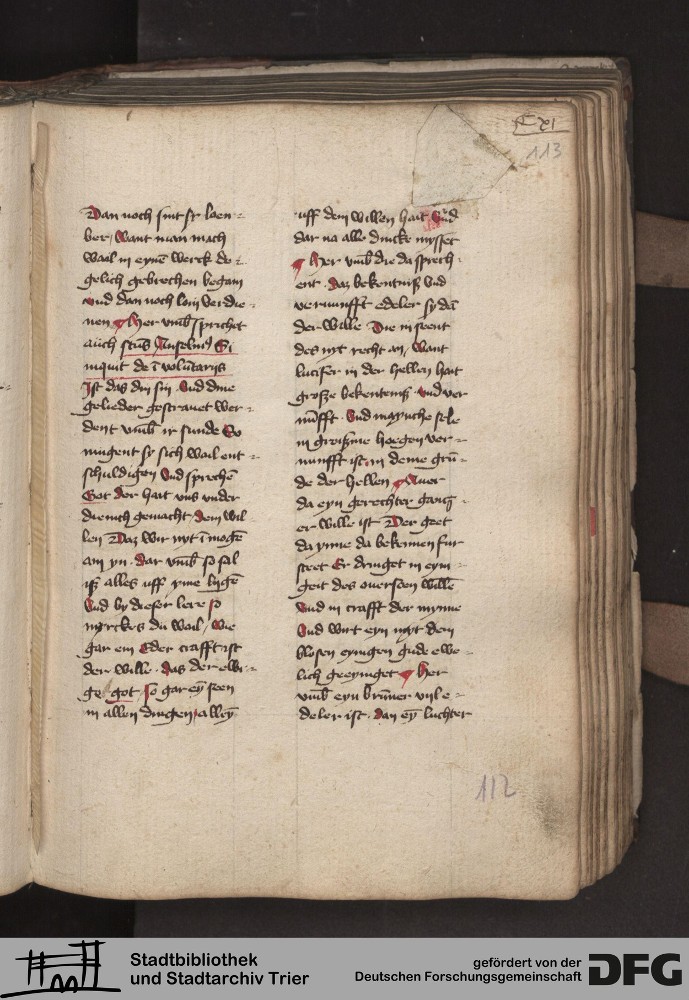 Cxi
113
Dan noch sint sy loen=
ber / Want man mach
wail in eynē werck do=
gelich gebrechen began
vnd dan noch loin verdie=
nen ¶ Her vmb sprichet
auch scūs Anselmꝰ Si
inquit de ī volūtariis
Ist das din sin Vnd dine
gelieder gestrauet wer=
dent vmb ir sunde So
mugent sy sich wail ent=
schuldigen Vnd sprechē
Got der hait vns vnder
dienich gemacht dem wil
len Daz wir nyt ī mogē
an yn · dar vmb so sal
iß alles uff yme ligē
Vnd by dieser lere so
myrckes du wail / wie
gar ein Eder crafft ist
der wille · das der ewi=
ge got / so gar eȳ seen
in allen dingen / alleȳ
uff dem willen hait Vnd
dar na alle dincke mysset
¶ Her vmb die da sprech=
ent · Daz bekentniß Vnd
vernunfft edeler sy dā
der wille Die in seent
des nyt recht an / Want
lucifer in der hellen hait
große bekenteniß · vnd ver
nūfft · Vnd mayniche sele
in groißme hoegen ver=
nunfft ist / in deme grū=
de der hellen ¶ Auer
da eyn gerechter gang=
er wille ist Der geet
da ynne da bekennen fur
steet Er dringet in eyni=
geit des ouersten willē
Vnd in crafft der mynne
Vnd wirt eyn myt dem
blosen eynigen gude ewe=
lich geeyniget ¶ Her
vmb eyn brūner vil e=
deler ist · dan eȳ luchter
112
Stadtbibliothek
und Stadtarchiv Trier
gefördert von der
Deutschen Forschungsgemeinschaft
DFG